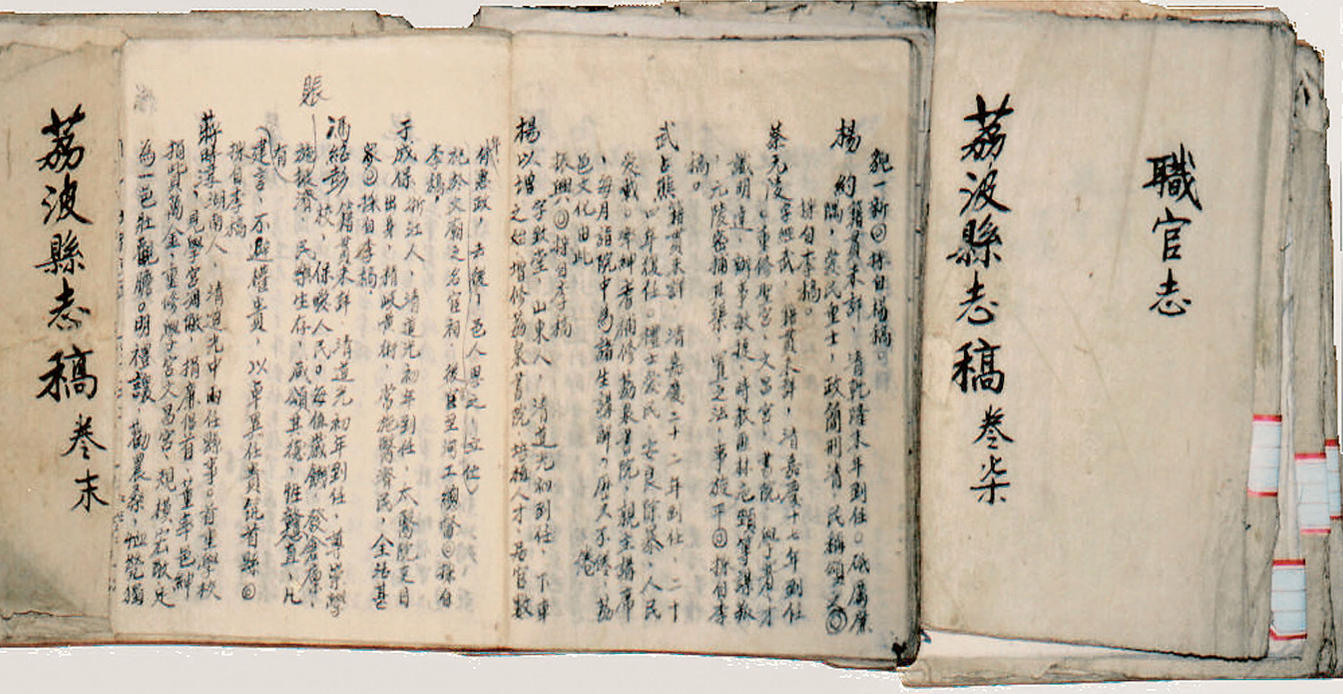 職官志
荔波縣志稿 卷柒
貌一新◎採自楊稿。
楊 約 籍貫未詳,清乾隆末年到任。砥厲廉
隅,愛民重士,政簡刑清,民稱頌之◎
採自李稿。
蔡元陵 字經武,籍貫未詳,清嘉慶十七年到任
。重修聖宮、文昌宮、書院,興育人才
識明達,辦事敏捷,時教匪林 等謀叛
,元陵密捕其渠,置之法,事旋平◎採自李
稿。
武占熊 籍貫未詳,清嘉慶二十二年到任,二十
四年復任。禮士愛民,安良除暴,人民
愛戴。率紳耆補修荔泉書院,親主講席
,每月詣院中為諸生講解,歷久不倦,荔
邑文化由此
振興◎採自李稿
楊以增 字致堂,山東人,清道光初到任,下車
之始,增修荔泉書院,培植人才,居官數
年惠政,去後,邑人思之,立位
祀於文廟之名宦祠。後官至河工總督◎採自
李稿,
于成保 浙江人,清道光初年到任,太醫院吏目
出身,精岐黃術,常施醫濟民,全活甚
眾◎採自李稿,
馮紹彭 籍貫未詳,清道光初年到任,尊崇學
校,保障人民。每值歲饑,發倉廩,
施賑濟,民樂生存,咸頌其德,性戇直,凡
有
建言,不避權貴,以卓異任貴筑首縣◎
採自李稿
賬
蔣 湖南人,清道光中兩任縣事。首重學校
,見學宮湫隘,捐廉倡首,董率邑紳
捐貲萬金,重修學宮文昌宮,規模宏敞,足
為一邑壯觀瞻。明禮讓,勸農桑,恤煢獨
荔波縣志稿 卷末